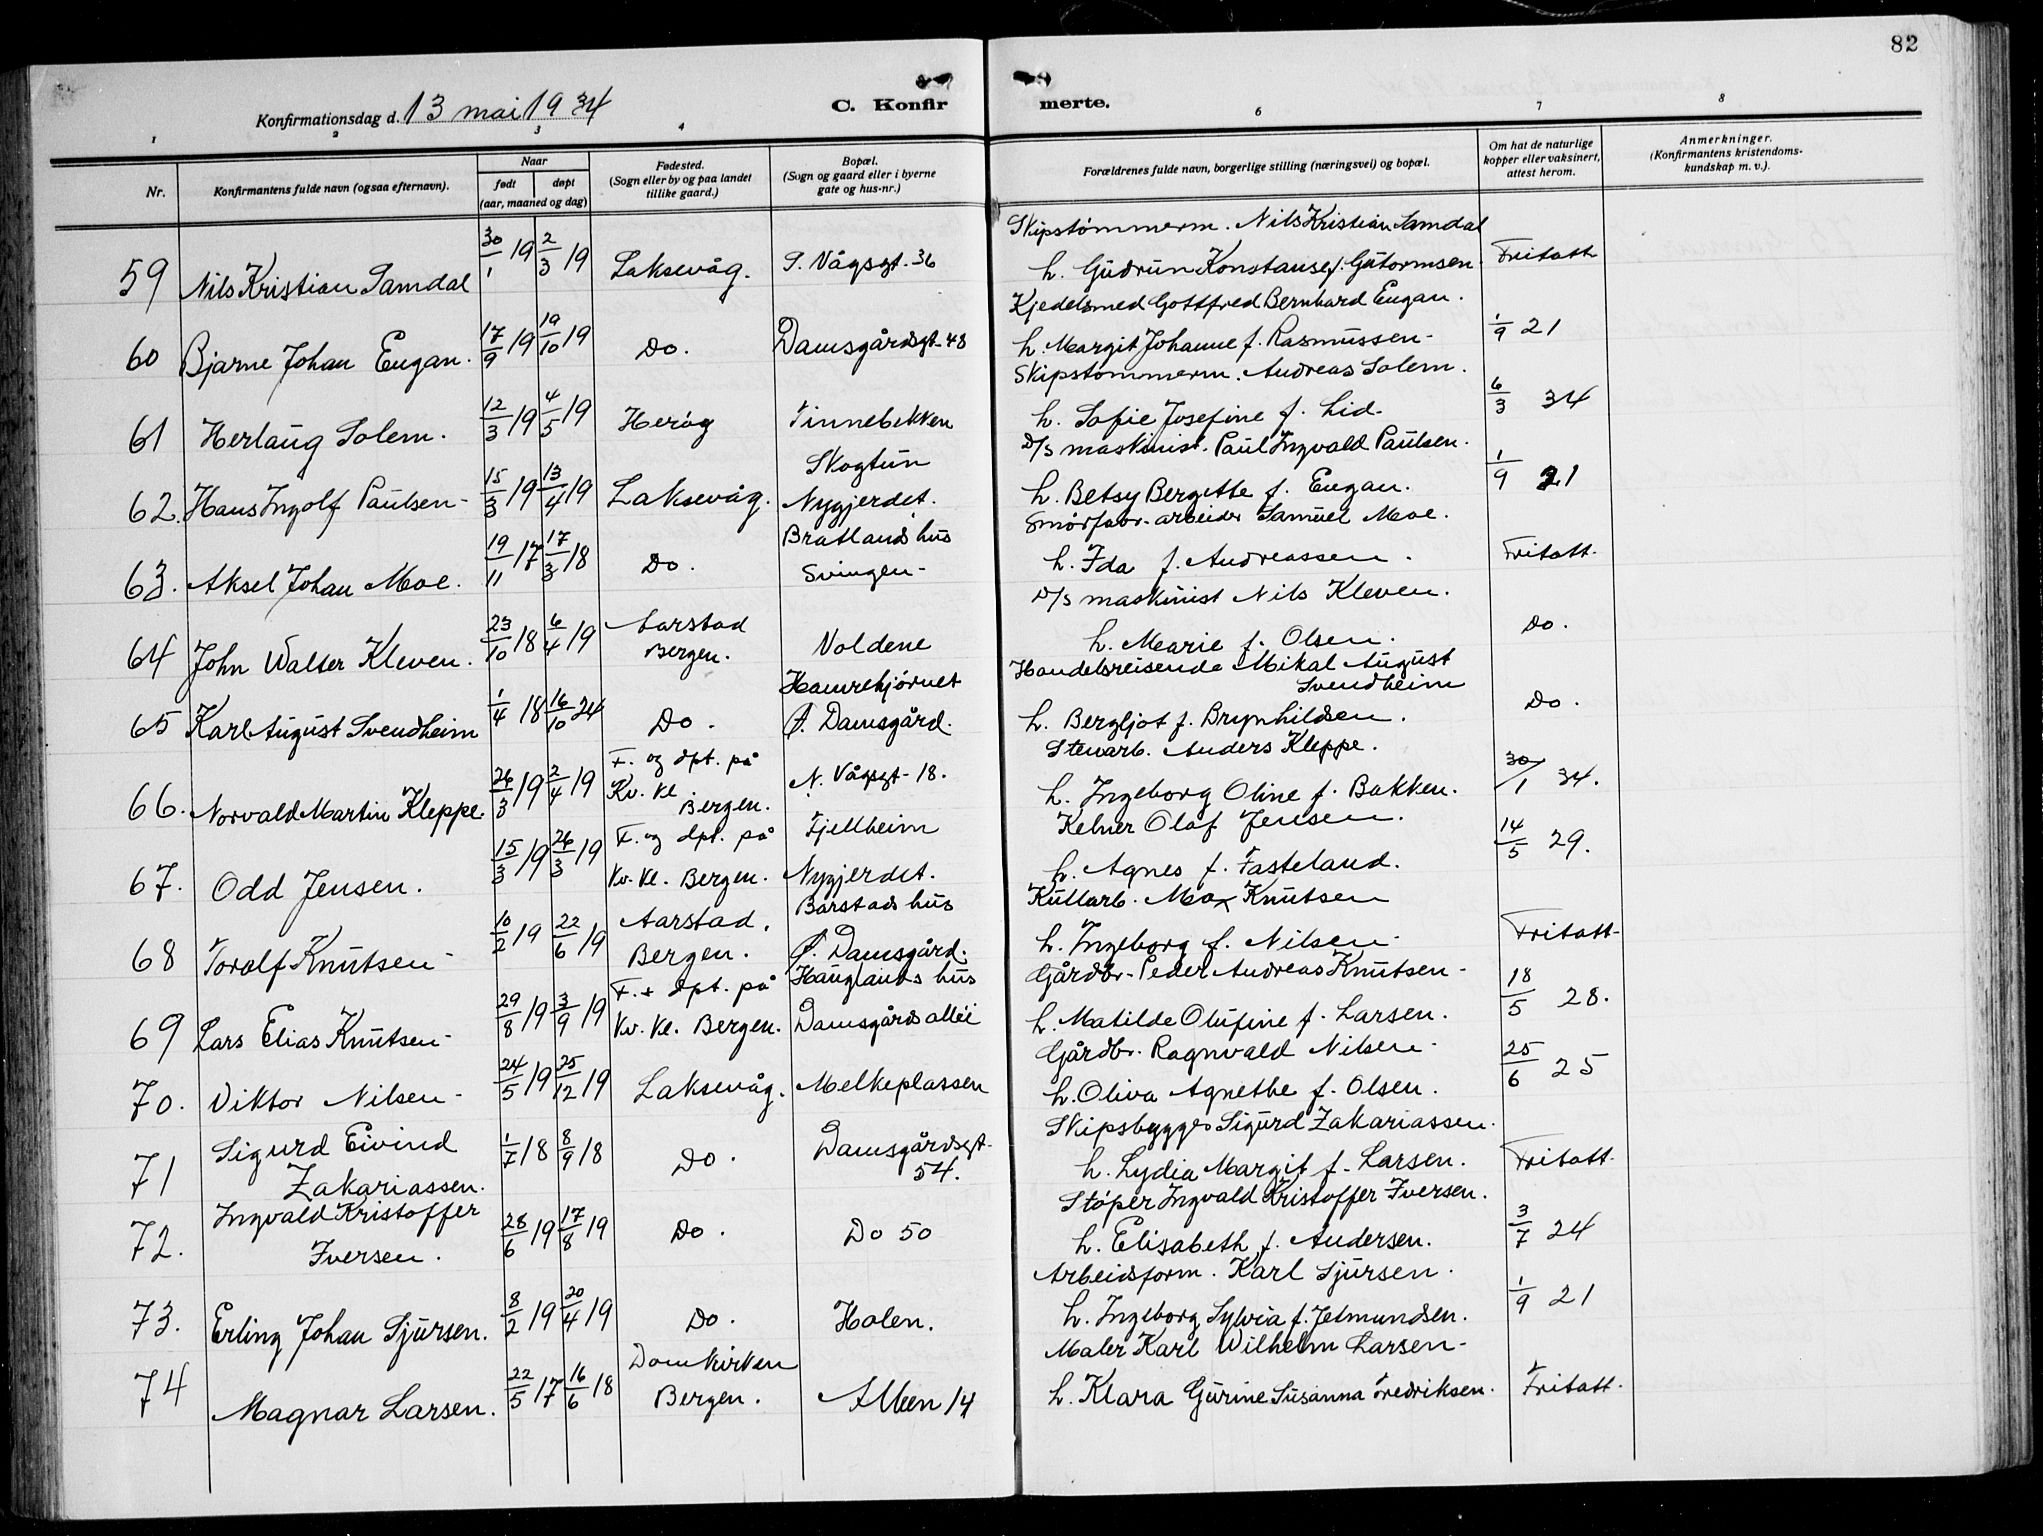 82
Konfirmationsdag d. 13 mai 1934
C. Konfir
merte.
1 2 3 4 6 7 8
Nr.
Konfirmantens fulde navn (ogsaa efternavn).
Naar
født døpt
(aar, maaned og dag)
Fødested.
(Sogn eller by og paa landet
tillike gaard.)
Bopæl.
(Sogn og gaard eller i byerne
gate og hus-nr.)
Forældrenes fulde navn, borgerlige stilling (næringsvei) og bopæl.
Om hat de naturlige
kopper eller vaksinert,
attest herom.
Anmerkninger.
(Konfirmantens kristendoms-
kundskap m. v.).
Skipstømmerm. Nils Kristian Samdal
59 Nils Kristian Samdal 30/1 19 2/3 19 Laksevåg. S. Vågsgt. 36 h. Gudrun Konstanse f. Gutormsen Fritatt
Kjedelsmed Gottfred Bernhard Eugan.
60 Bjarne Johan Eugan. 17/9 19 19/10 19 Do. Damsgårdsgt. 48 h. Margit Johanne f. Rasmussen- 1/9 21
Skipstømmerm. Andreas Solem.
61 Herlaug Solem. 12/3 19 4/5 19 Herøy Finnebekken h. Sofie Josefine f. Lid. 6/3 34
Skogtun D/s maskinist. Paul Ingvald Paulsen.
62. Hans Ingolf Paulsen- 15/3 19 13/4 19 Laksevåg. Nygjerdet. h. Betsy Bergitte f. Eugan. 1/9 21
Bratlands hus Smørfabr. arbeider Samuel Moe.
63. Aksel Johan Moe. 19/11 17 17/3 18 Do. Svingen- h. Ida f. Andreassen. Fritatt.
D/s maskinist Nils Kleven.
64 John Walter Kleven. 23/10 18 6/4 19 Aarstad Bergen. Voldene h. Marie f. Olsen. Do.
Hamrehjørnet Handelsreisende Mikal August
Svendheim
65 Karl August Svendheim 1/4 18 16/10 24 Do. Ø. Damsgård. h. Bergljot f. Brynhildsen. Do.
F. og dpt. på Stenarb. Anders Kleppe.
66. Norvald Martin Kleppe. 26/3 19 2/4 19 Kv. kl. Bergen. N. Vågsgt- 18. h. Ingeborg Oline f. Bakken. 30/1 34.
F. og dpt. på Fjellheim Kelner Olaf Jensen.
67. Odd Jensen. 15/3 19 26/3 19 Kv. kl. Bergen. Nygjerdet. h. Agnes f. Fasteland. 14/5 29.
Barstads hus Kullarb. Max Knutsen
68 Toralf Knutsen- 10/2 19 22/6 19 Aarstad. Bergen. Ø. Damsgård. h. Ingeborg f. Nilsen- Fritatt-
F. + dpt. på Hauglands hus Gårdbr. Peder Andreas Knutsen-
69 Lars Elias Knutsen- 29/8 19 3/9 19 Kv. kl. Bergen. Damsgårds alléi h. Matilde Olufine f. Larsen. 18/5 28.
Gårdbr. Ragnvald Nilsen-
70. Viktor Nilsen- 24/5 19 25/12 19 Laksevåg. Melkeplassen h. Oliva Agnethe f. Olsen. 25/6 25
Skipsbygger Sigurd Zakariassen.
71 Sigurd Eivind Zakariassen. 1/7 18 8/9 18 Do. Damsgårdsgt. 54. h. Lydia Margit f. Larsen. Fritatt.
Støper Ingvald Kristoffer Iversen.
72. Ingvald Kristoffer Iversen. 28/6 19 17/8 19 Do. Do 50 h. Elisabeth f. Andersen. 3/7 24
Arbeidsform. Karl Sjursen.
73. Erling Johan Sjursen. 8/2 19 20/4 19 Do. Holen. h. Ingeborg Sylvia f. Jetmundsen. 1/9 21
Maler Karl Wilhelm Larsen-
74 Magnar Larsen. 22/5 17 16/6 18 Domkirken Bergen. Alleen 14 h. Klara Gurine Susanna Fredriksen. Fritatt.